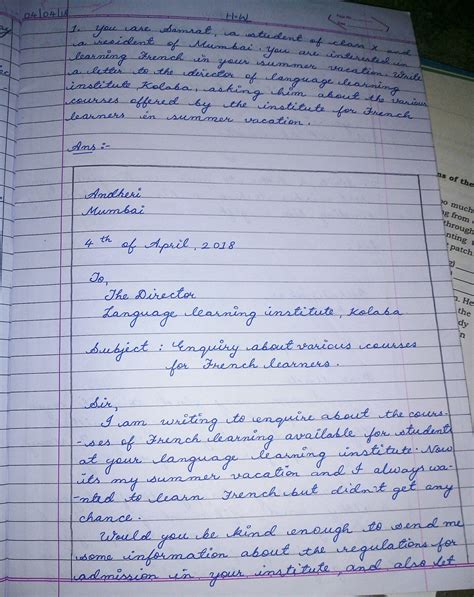 04/04/18
H.W
1. You are Samrat, a student of class X and
a resident of Mumbai. You are interested in
learning French in your summer vacation. Write
a letter to the director of language learning
institute Kolaba, asking him about the various
courses offered by the institute for French
learners in summer vacation.
Ans :-
Andheri
Mumbai
4th of April, 2018
To,
The Director
Language learning institute, Kolaba
Subject : Enquiry about various courses
for French learners.
Sir,
I am writing to enquire about the cours-
-ses of French learning available for students
at your language learning institute. Now
its my summer vacation and I always wa-
-nted to learn French but didn't get any
chance.
Would you be kind enough to send me
some information about the regulations for
admission in your institute, and also let
ns of the
oo much
g from
through
nting
patch
n. He
the
dy
n